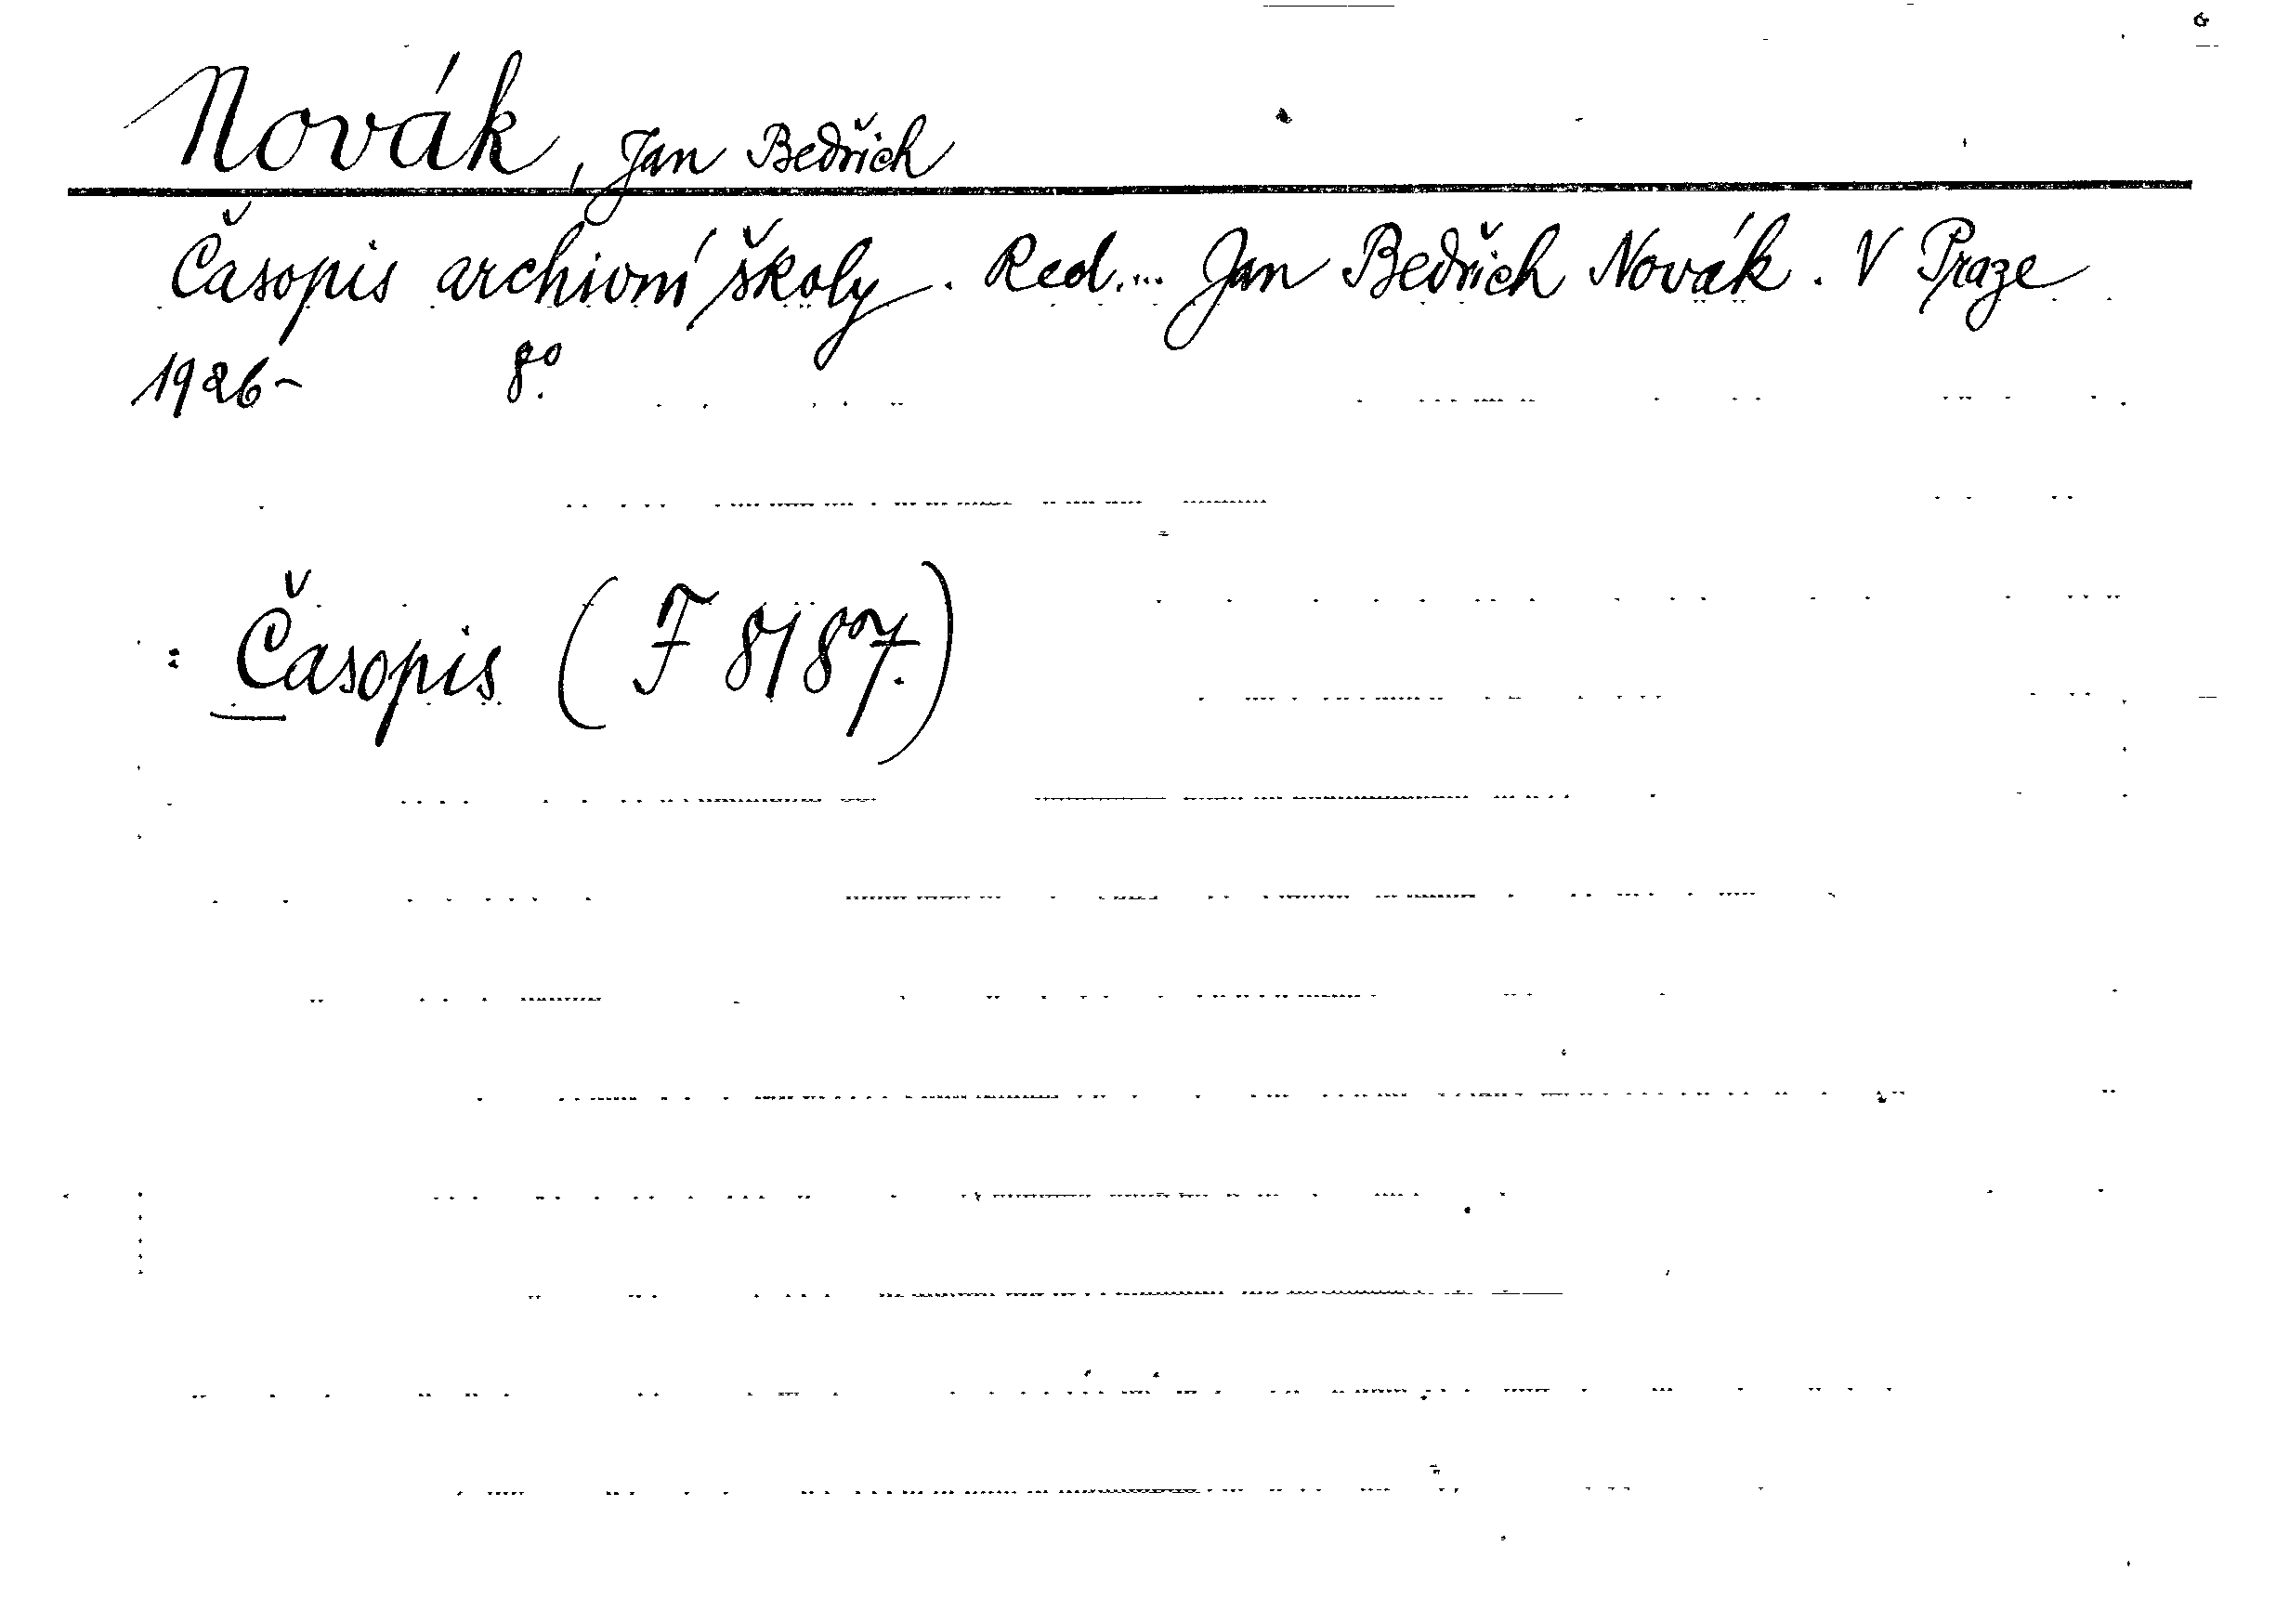 Novák, Jan Bedřich
Časopis archivní školy. Red.... Jan Bedřich Novák. V Praze
1926- 8º.
: Časopis (F 8187.)